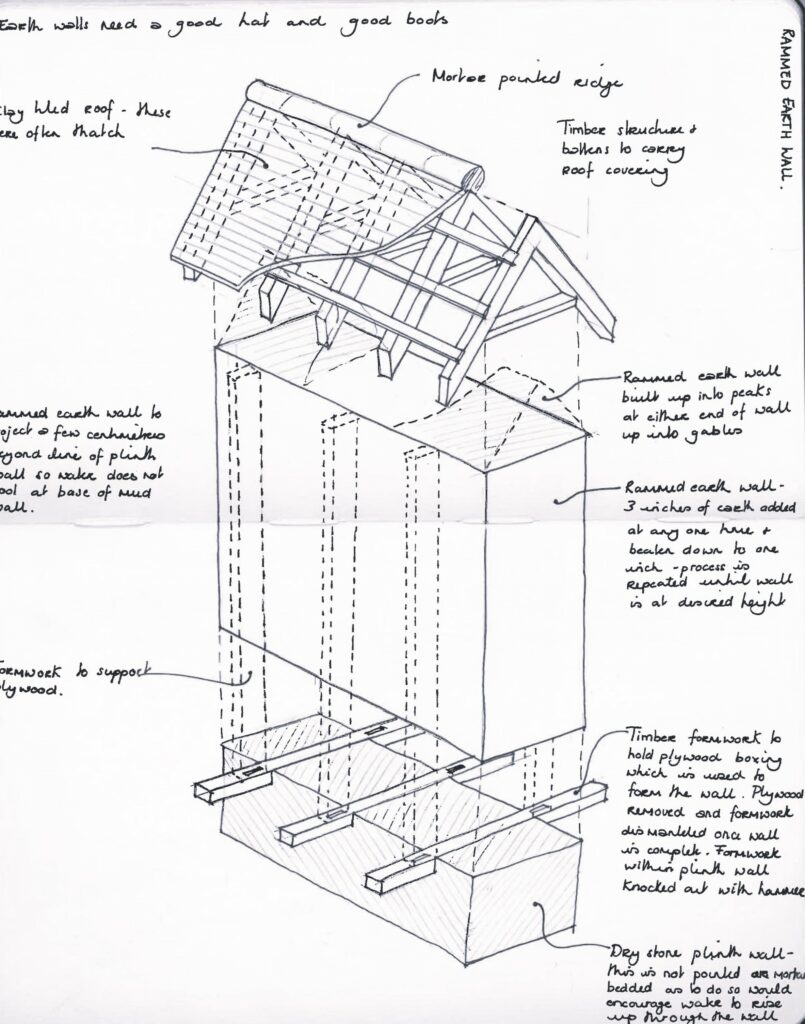 Earth walls need a good hat and good boots
RAMMED EARTH WALL.
Mortar pointed ridge
lay tiled roof - these
ere often thatch
Timber structure +
battens to carry
roof covering
Rammed earth wall
built up into peaks
at either end of wall
up into gables
ammed earth wall to
oject a few centimetres
eyond line of plinth
all so water does not
ool at base of mud
all.
Rammed earth wall -
3 inches of earth added
at any one time +
beaten down to one
inch - process is
repeated until wall
is at desired height
ormwork to support
plywood.
Timber formwork to
hold plywood boxing
which is used to
form the wall. Plywood
removed and formwork
dismantled once wall
is complete. Formwork
within plinth wall
knocked out with hammer
Dry stone plinth wall -
this is not pointed or mortar
bedded as to do so would
encourage water to rise
up through the wall